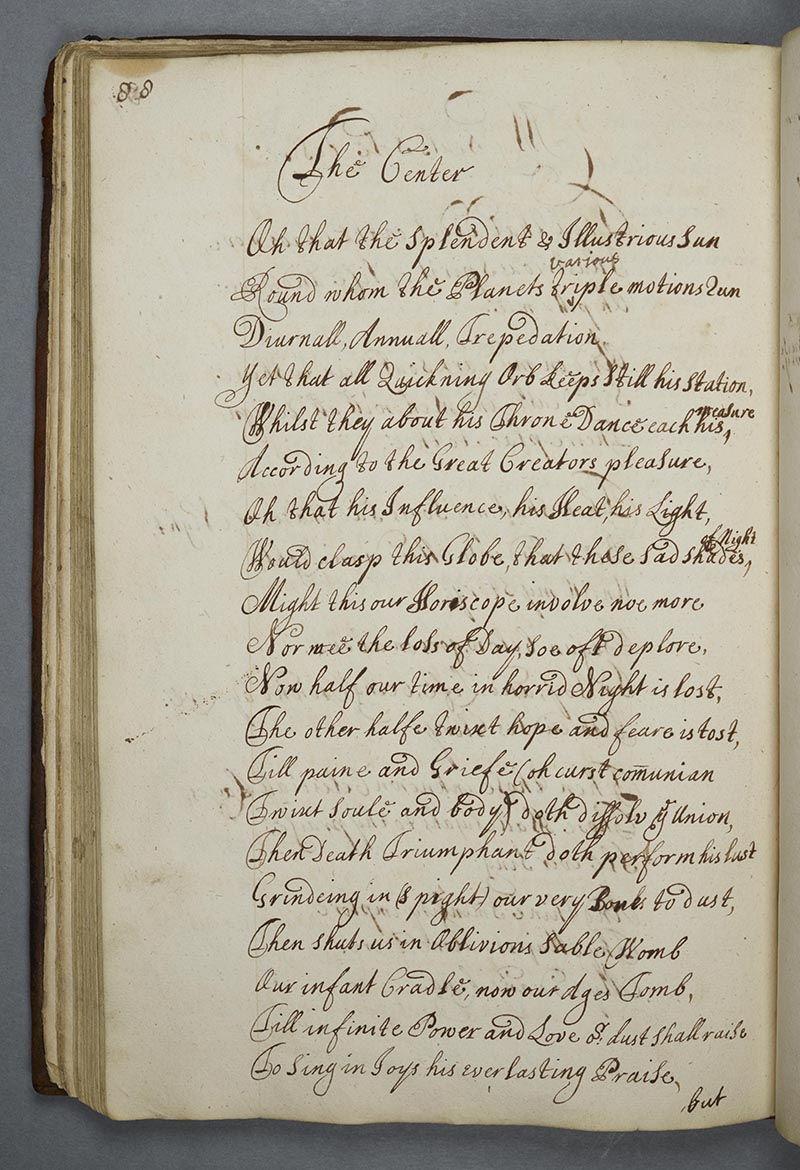 88
The Center
Oh that the Splendent & Illustrious Sun
various
Round whom the Planets triple motions Run
Diurnall, Annuall, Trepedation
Yet that all Quickning Orb keeps Still his Station,
Whilst they about his Throne Dance each his measure,
According to the Great Creators pleasure,
Oh that his Influence, his Heat, his Light,
Would clasp this Globe, that these Sad Shades of Night,
Might this our Horiscope involve noe more
Nor mee the loss of Day, Soe oft deplore,
Now half our time in horrid Night is lost,
The other halfe twixt hope and feare is tost,
Till paine and Griefe (oh curst com̄unian
Twixt Soule and body) doth dissolv yͤ Union,
Then Death Triumphant doth perform his lust
Grindeing in (Spight) our very to dust,
Then shuts us in Oblivions Sable Womb
Our infant Cradle, now our Ages Tomb,
Till infinite Power and Love oʳ. dust Shall raise
To Sing in Joys his everlasting Praise,
but